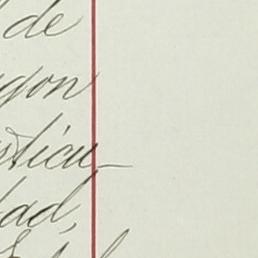 de
gon
sticu-
dad,